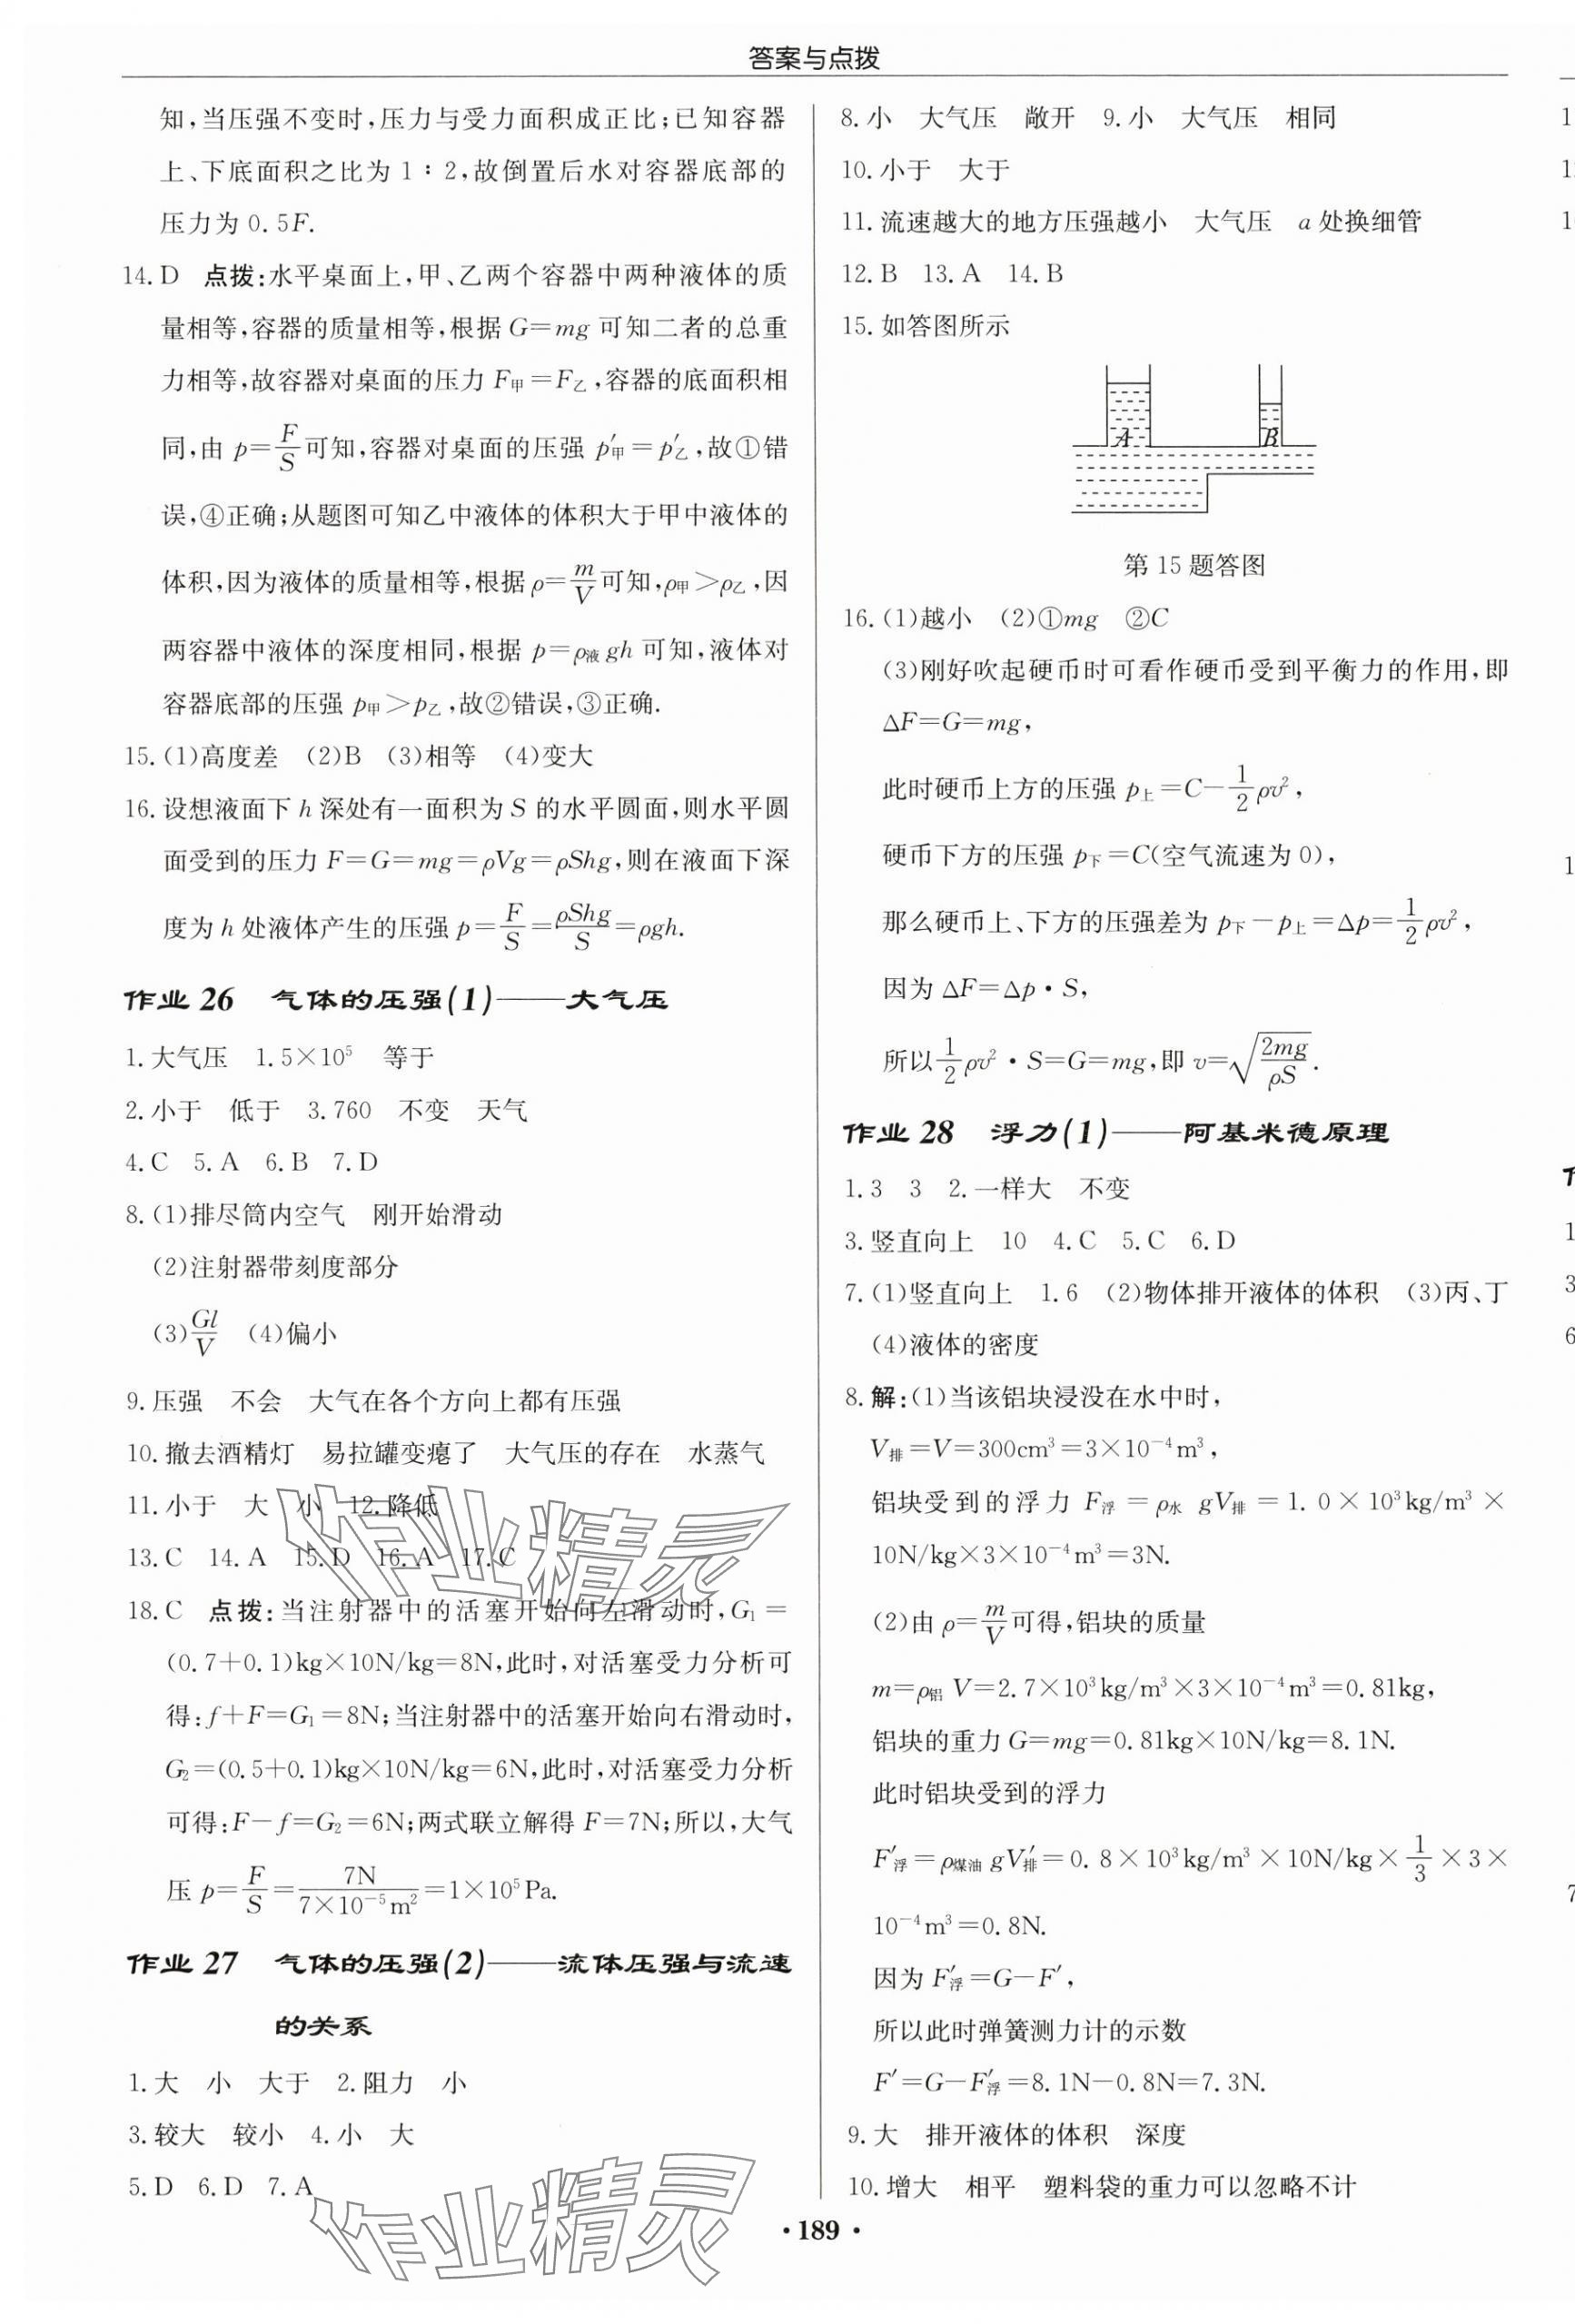 答案与点拨
知,当压强不变时,压力与受力面积成正比;已知容器
上、下底面积之比为 1∶2,故倒置后水对容器底部的
压力为 0.5F.
14.D 点拨:水平桌面上,甲、乙两个容器中两种液体的质
量相等,容器的质量相等,根据 G=mg 可知二者的总重
力相等,故容器对桌面的压力 F甲=F乙,容器的底面积相
同,由 p=F/S可知,容器对桌面的压强 p′甲=p′乙,故①错
误,④正确;从题图可知乙中液体的体积大于甲中液体的
体积,因为液体的质量相等,根据 ρ=m/V可知,ρ甲>ρ乙,因
两容器中液体的深度相同,根据 p=ρ液gh 可知,液体对
容器底部的压强 p甲>p乙,故②错误,③正确.
15.(1)高度差 (2)B (3)相等 (4)变大
16.设想液面下 h 深处有一面积为 S 的水平圆面,则水平圆
面受到的压力 F=G=mg=ρVg=ρShg,则在液面下深
度为 h 处液体产生的压强 p=F/S=ρShg/S=ρgh.
作业 26 气体的压强(1)——大气压
1.大气压 1.5×10⁵ 等于
2.小于 低于 3.760 不变 天气
4.C 5.A 6.B 7.D
8.(1)排尽筒内空气 刚开始滑动
(2)注射器带刻度部分
(3)Gl/V (4)偏小
9.压强 不会 大气在各个方向上都有压强
10.撤去酒精灯 易拉罐变瘪了 大气压的存在 水蒸气
11.小于 大 小 12.降低
13.C 14.A 15.D 16.A 17.C
18.C 点拨:当注射器中的活塞开始向左滑动时,G₁=
(0.7+0.1)kg×10N/kg=8N,此时,对活塞受力分析可
得:f+F=G₁=8N;当注射器中的活塞开始向右滑动时,
G₂=(0.5+0.1)kg×10N/kg=6N,此时,对活塞受力分析
可得:F-f=G₂=6N;两式联立解得 F=7N;所以,大气
压 p=F/S=7N/(7×10⁻⁵m²)=1×10⁵Pa.
作业 27 气体的压强(2)——流体压强与流速
的关系
1.大 小 大于 2.阻力 小
3.较大 较小 4.小 大
5.D 6.D 7.A
8.小 大气压 敞开 9.小 大气压 相同
10.小于 大于
11.流速越大的地方压强越小 大气压 a 处换细管
12.B 13.A 14.B
15.如答图所示
A B
第 15 题答图
16.(1)越小 (2)①mg ②C
(3)刚好吹起硬币时可看作硬币受到平衡力的作用,即
△F=G=mg,
此时硬币上方的压强 p上=C-1/2ρv²,
硬币下方的压强 p下=C(空气流速为 0),
那么硬币上、下方的压强差为 p下-p上=△p=1/2ρv²,
因为 △F=△p·S,
所以1/2ρv²·S=G=mg,即 v=√(2mg/ρS).
作业 28 浮力(1)——阿基米德原理
1.3 3 2.一样大 不变
3.竖直向上 10 4.C 5.C 6.D
7.(1)竖直向上 1.6 (2)物体排开液体的体积 (3)丙、丁
(4)液体的密度
8.解:(1)当该铝块浸没在水中时,
V排=V=300cm³=3×10⁻⁴m³,
铝块受到的浮力 F浮=ρ水 gV排=1.0×10³kg/m³×
10N/kg×3×10⁻⁴m³=3N.
(2)由 ρ=m/V可得,铝块的质量
m=ρ铝V=2.7×10³kg/m³×3×10⁻⁴m³=0.81kg,
铝块的重力 G=mg=0.81kg×10N/kg=8.1N.
此时铝块受到的浮力
F′浮=ρ煤油gV′排=0.8×10³kg/m³×10N/kg×1/3×3×
10⁻⁴m³=0.8N.
因为 F′浮=G-F′,
所以此时弹簧测力计的示数
F′=G-F′浮=8.1N-0.8N=7.3N.
9.大 排开液体的体积 深度
10.增大 相平 塑料袋的重力可以忽略不计
· 189 ·
作业精灵
作业精灵